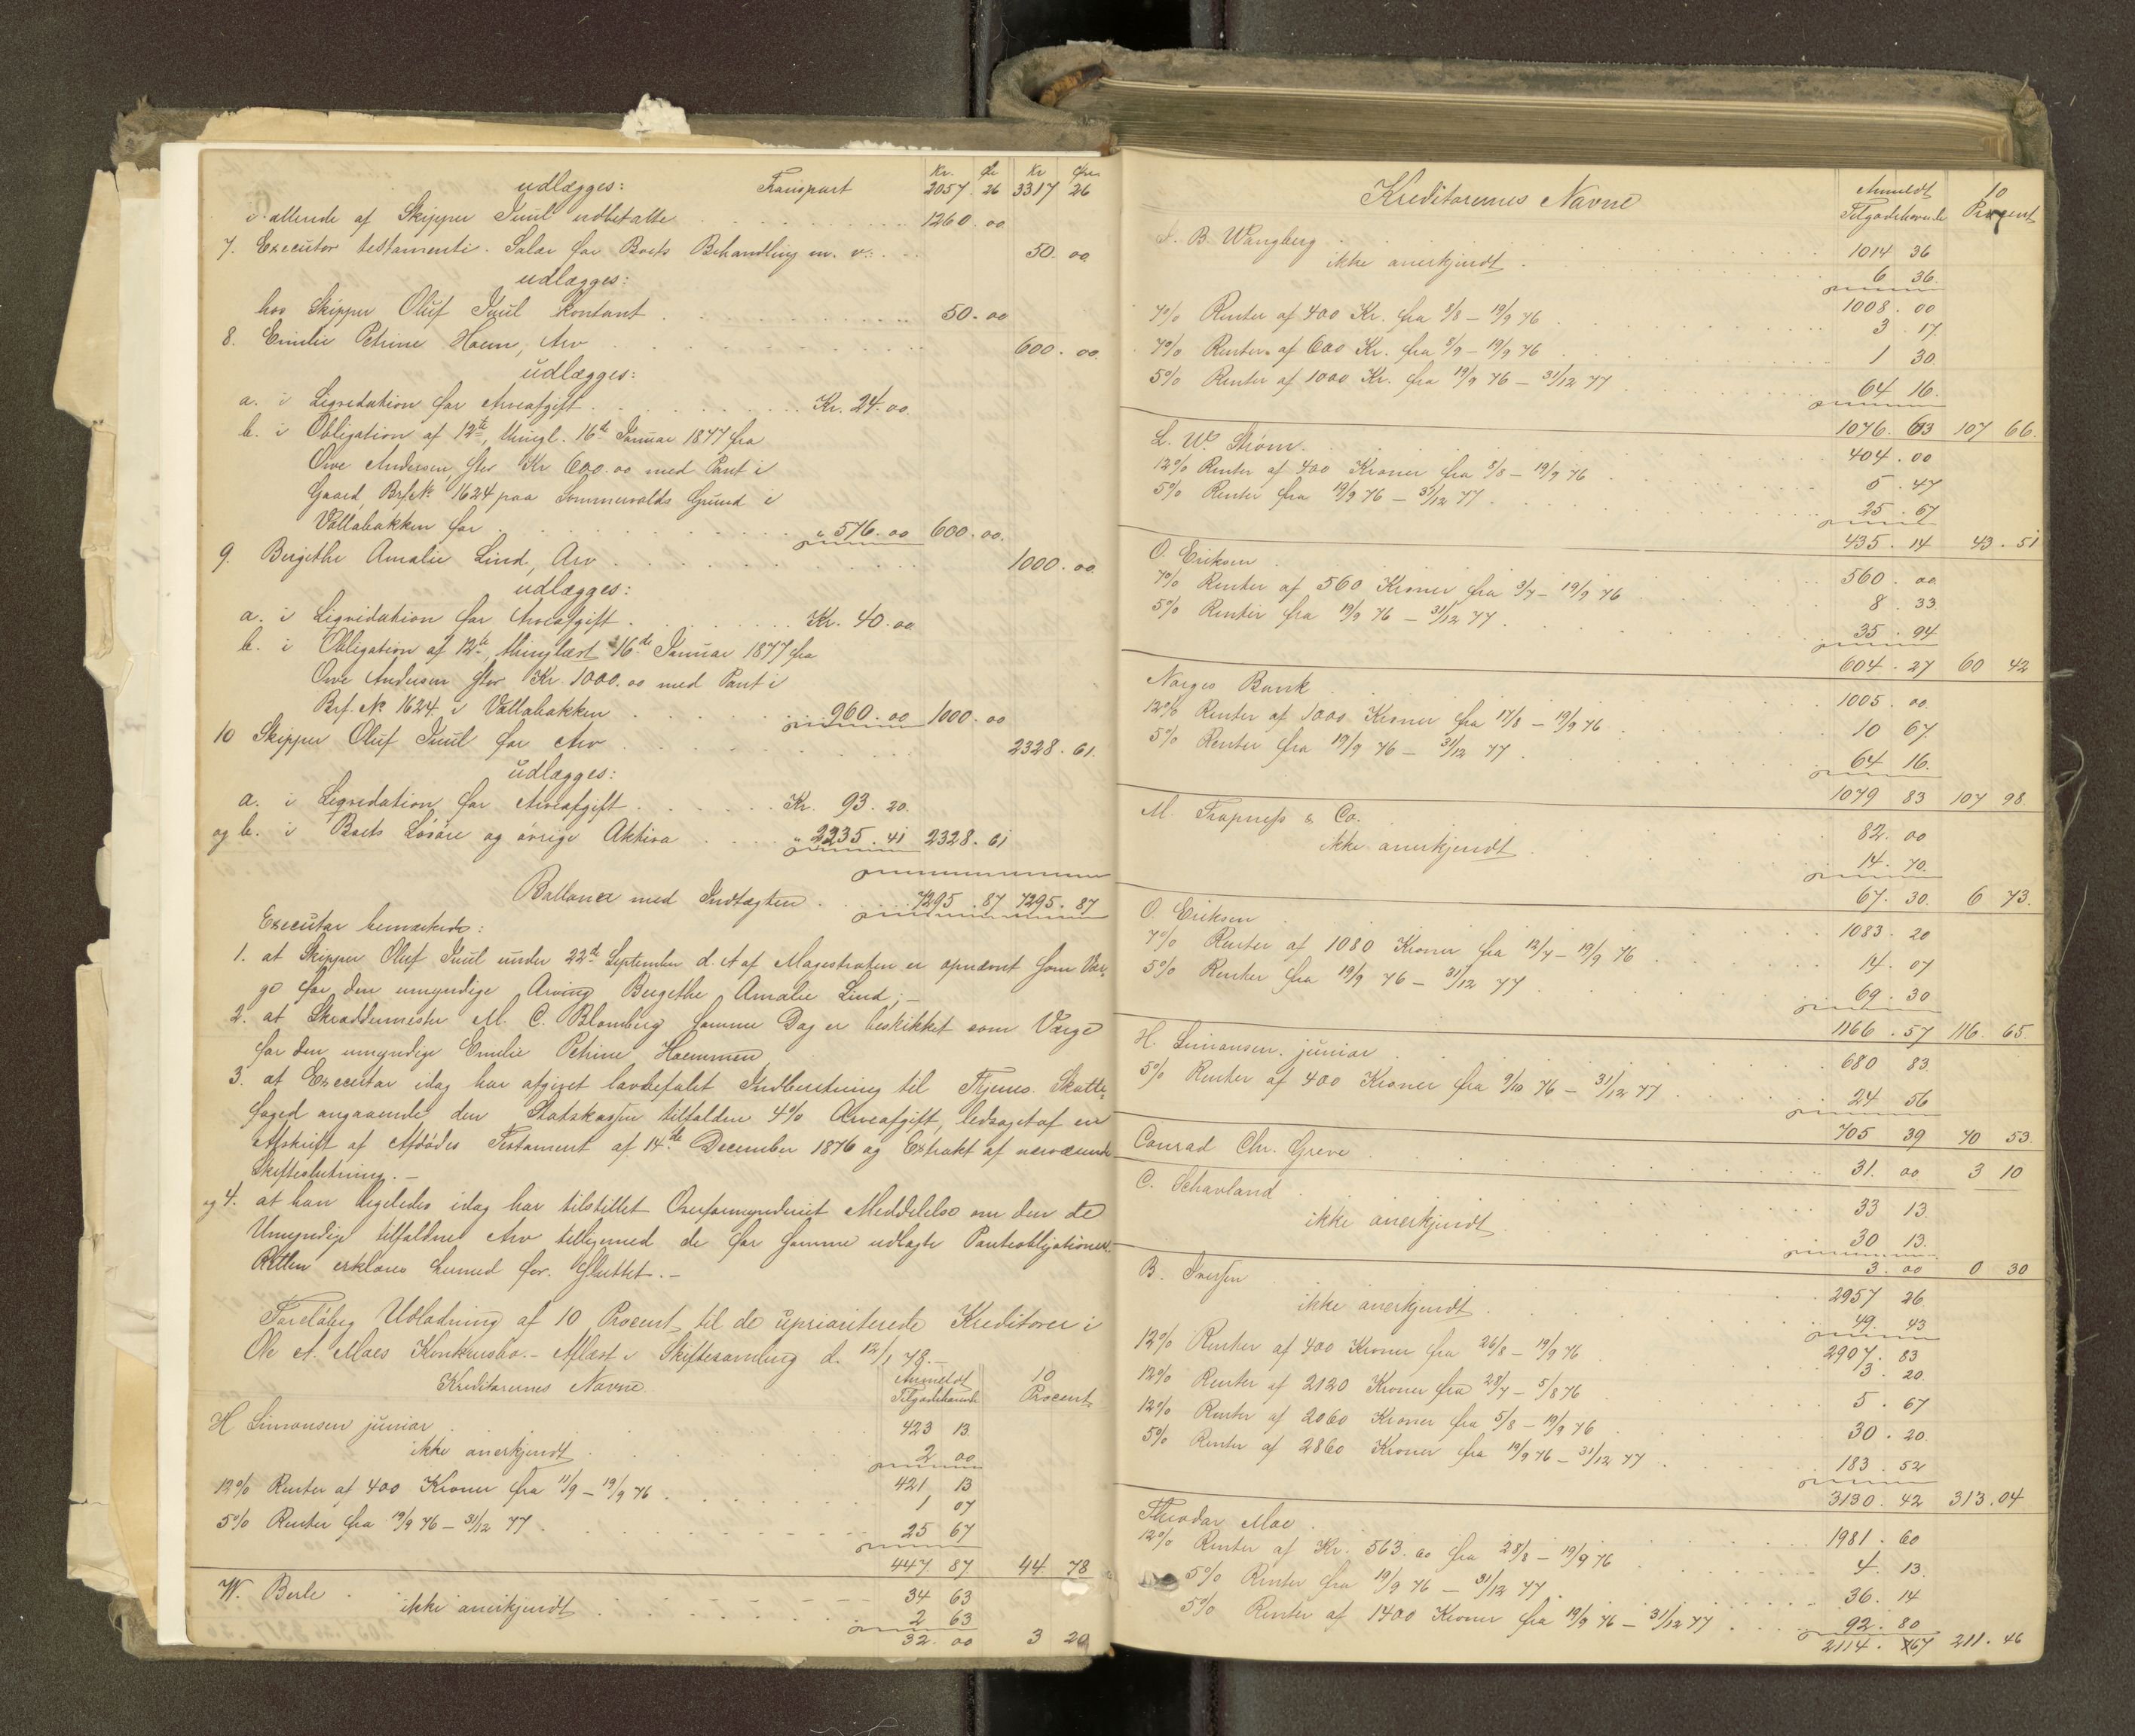 Kr. Ør Kr Øre
udlægges: Transport 2057. 26 3317 26
i allerede af Skipper Juul udbetalte 1260. 00
7. Executor testamenti. Salær for Boets Behandling m. v. 50. 00
udlægges:
hos Skipper Oluf Juul kontant 50. 00
8. Emilie Petrine Haem, Arv 600. 00.
udlægges:
a. i Liqvidation for Arveafgift Kr. 24. 00.
b. i Obligation af 12te, thingl. 16de Januar 1877 fra
Ove Andersen, stor Kr 600. 00 med Pant i
Gaard, Brf. No 1624 paa Sommervolds Grund i
Vollabakken for " 576. 00 600. 00.
9. Bergethe Amalie Lind, Arv 1000. 00.
udlægges:
a. i Liqvidation for Arveafgift Kr. 40. 00
b. i Obligation af 12te, thinglæst 16de Januar 1877 fra
Ove Andersen stor Kr. 1000. 00 med Pant i
Brf. No 1624 i Vollabakken " 960. 00 1000. 00
10 Skipper Oluf Juul for Arv 2328. 61.
udlægges:
a. i Liqvidation for Arveafgift Kr. 93. 20.
og b. i Boets Løsøre og øvrige Aktiva " 2235. 41 2328. 61
Ballancer med Indtægten 7295. 87 7295. 87
Executor bemærkede:
1. at Skipper Oluf Juul under 22de September d. A af Magistraten er opnævnt som Vær-
ge for den umyndige Arving Bergethe Amalie Lind; -
2. at Skræddermester M. C. Blomberg samme Dag er beskikket som Værge
for den umyndige Emilie Petrine Haemmen
3. at Executor idag har afgivet lovbefalet Indberetning til Thjems. Skatte-
foged angaaende den Statskassen tilfaldne 4% Arveafgift, ledsaget af en
Afskrift af Afdødes Testament af 14de December 1876 og Extrakt af nærværende
Skifteslutning. -
og 4. at han ligeledes idag har tilstillet Overformynderiet Meddelelse om den de
Umyndige tilfaldne Arv tilligemed de for samme udlagte Panteobligationer.
Retten erklæres hermed for. Sluttet. -
Foreløbig Udlodning af 10 Procent til de upriariterede Kreditorer i
Ole A. Moes Konkursbo. - Aflæst i Skiftesamling d. 12/1 78. -
Kreditorernes Navne. Anmeldt Tilgodehavende 10 Procent
H Simonsen junior 423 13.
ikke anerkjendt 2 00
421 13
12% Renter af 400 Kroner fra 11/9 - 19/9 76 1 07
5% Renter fra 19/9 76 - 31/12 77 25 67
447. 87. 44. 78
W. Berle 34 63
ikke anerkjendt 2 63
32. 00 3 20
Kreditorernes Navne Anmeldt Tilgodehavende 10 Procent
B. Wangberg 1014 36
ikke anerkjendt 6 36.
1008. 00
7% Renter af 400 Kr. fra 8/8 - 19/9 76 3. 17.
7% Renter af 600 Kr. fra 8/9 - 19/9 76 1 30
5% Renter af 1000 Kr. fra 19/9 76 - 31/12 77 64 16.
1076. 63 107 66.
L. W. Strøm 404. 00
12% Renter af 400 Kroner fra 8/8 - 19/9 76 5. 47
5% Renter fra 19/9 76 - 31/12 77 25. 67
435. 14 43. 51
O. Eriksen 560. 00
7% Renter af 560 Kroner fra 3/7 - 19/9 76 8. 33.
5% Renter fra 19/9 76 - 31/12 77 35. 94
604. 27 60 42
Norges Bank 1005. 00.
12% Renter af 1000 Kroner fra 17/8 - 19/9 76 10 67.
5% Renter fra 19/9 76 - 31/12 77 64 16.
1079 83 107 98.
M. Trapness & Co. 82. 00
ikke anerkjendt 14. 70.
67. 30. 6 73.
O. Eriksen 1083. 20
7% Renter af 1080 Kroner fra 12/7 - 19/9 76 14. 07
5% Renter fra 19/9 76 - 31/12 77 69. 30
1166. 57 116. 65.
H. Simonsen. junior 680 83.
5% Renter af 400 Kroner fra 9/10 76 - 31/12 77 24 56
705 39 70 53.
Conrad Chr. Greve 31. 00 3 10
C. Schavland 33 13.
ikke anerkjendt 30 13.
3. 00 0 30
B. Iversen 2957 26.
ikke anerkjendt 49. 43
2907. 83
12% Renter af 400 Kroner fra 26/8 - 19/9 76 3. 20.
12% Renter af 2120 Kroner fra 28/7 - 5/8 76 5. 67
12% Renter af 2060 Kroner fra 5/8 - 19/9 76 30. 20.
5% Renter af 2860 Kroner fra 19/9 76 - 31/12 77 183. 52
3130. 42 313. 04
Theodor Moe 1981. 60
12% Renter af Kr. 563. 60 fra 28/8 - 19/9 76 4. 13.
5% Renter fra 19/9 76 - 31/12 77 36. 14
5% Renter af 1400 Kroner fra 19/9 76 - 31/12 77 92. 80
2114. 67 211. 46